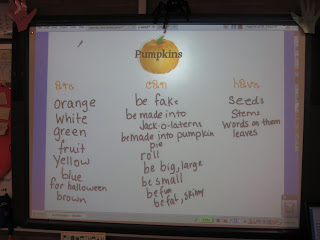 Pumpkins
are
orange
white
green
fruit
Yellow
blue
for halloween
brown
can
be fake
be made into
Jack-o-laterns
be made into pumpkin
pie
roll
be big, large
be small
be fun
be fat, skinny
have
seeds
Stems
words on them
leaves